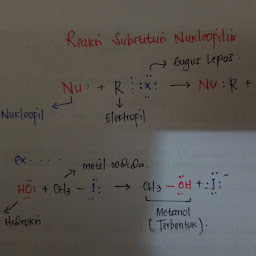 Reaksi Substitusi Nukleopilik
Gugus Lepas.
Nu: + R : X : → Nu : R +
Nukleopil
Elektropil
ex.....
metil iodida.
HO: + CH₃ – I: → CH₃ – OH + :I:⁻
Hidroksi
Metanol
(Terbentuk).